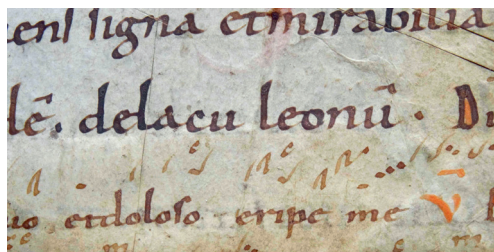 ens signa et mirabilia
lē. de lacu leonū. D
io et doloso eripe me V